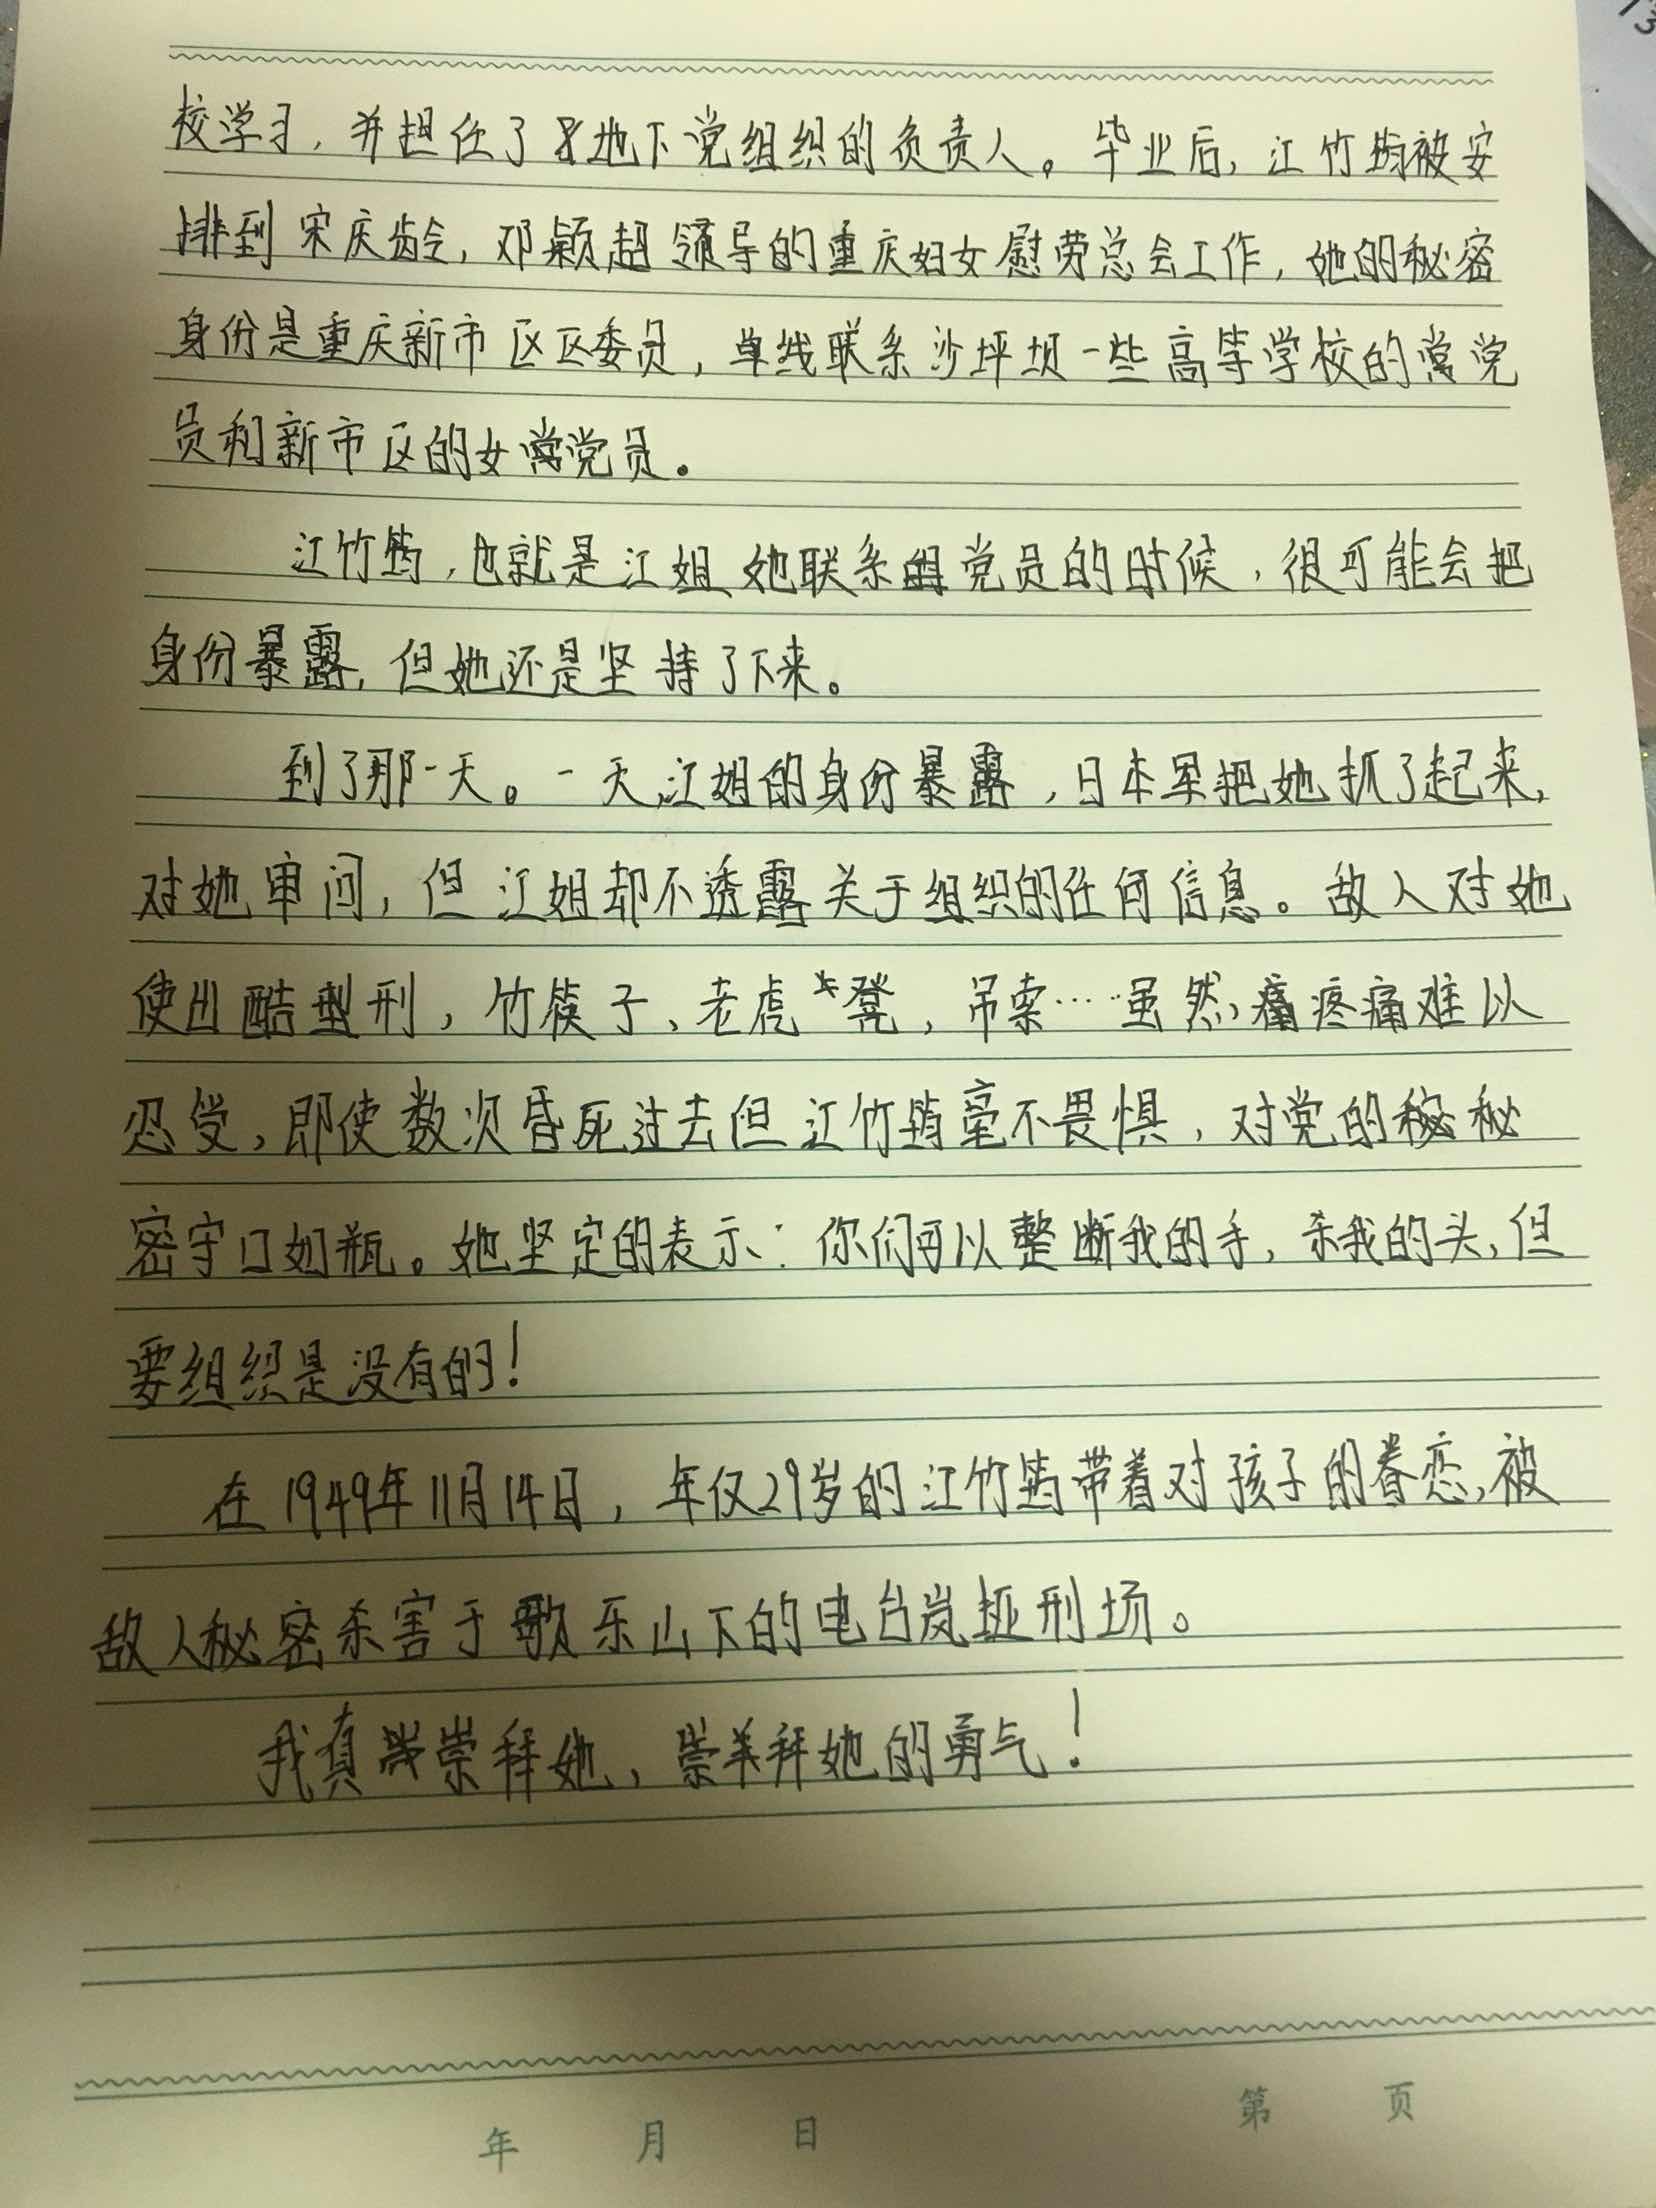 校学习，并担任了地下党组织的负责人。毕业后，江竹筠被安
排到宋庆龄，邓颖超领导的重庆妇女慰劳总会工作，她的秘密
身份是重庆新市区区委员，单线联系沙坪坝一些高等学校的党
员和新市区的女党员。
江竹筠，也就是江姐她联系党员的时候，很可能会把
身份暴露，但她还是坚持了下来。
到了那一天。一天，江姐的身份暴露，日本军把她抓了起来，
对她审问，但江姐却不透露关于组织的任何信息。敌人对她
使出酷刑，竹筷子、老虎凳，吊索……虽然，疼痛难以
忍受，即使数次昏死过去但江竹筠毫不畏惧，对党的秘
密守口如瓶。她坚定的表示：你们可以整断我的手，杀我的头，但
要组织是没有的！
在1949年11月14日，年仅29岁的江竹筠带着对孩子的眷恋，被
敌人秘密杀害于歌乐山下的电台岚垭刑场。
我真崇拜她，崇拜她的勇气！
年 月 日 第 页